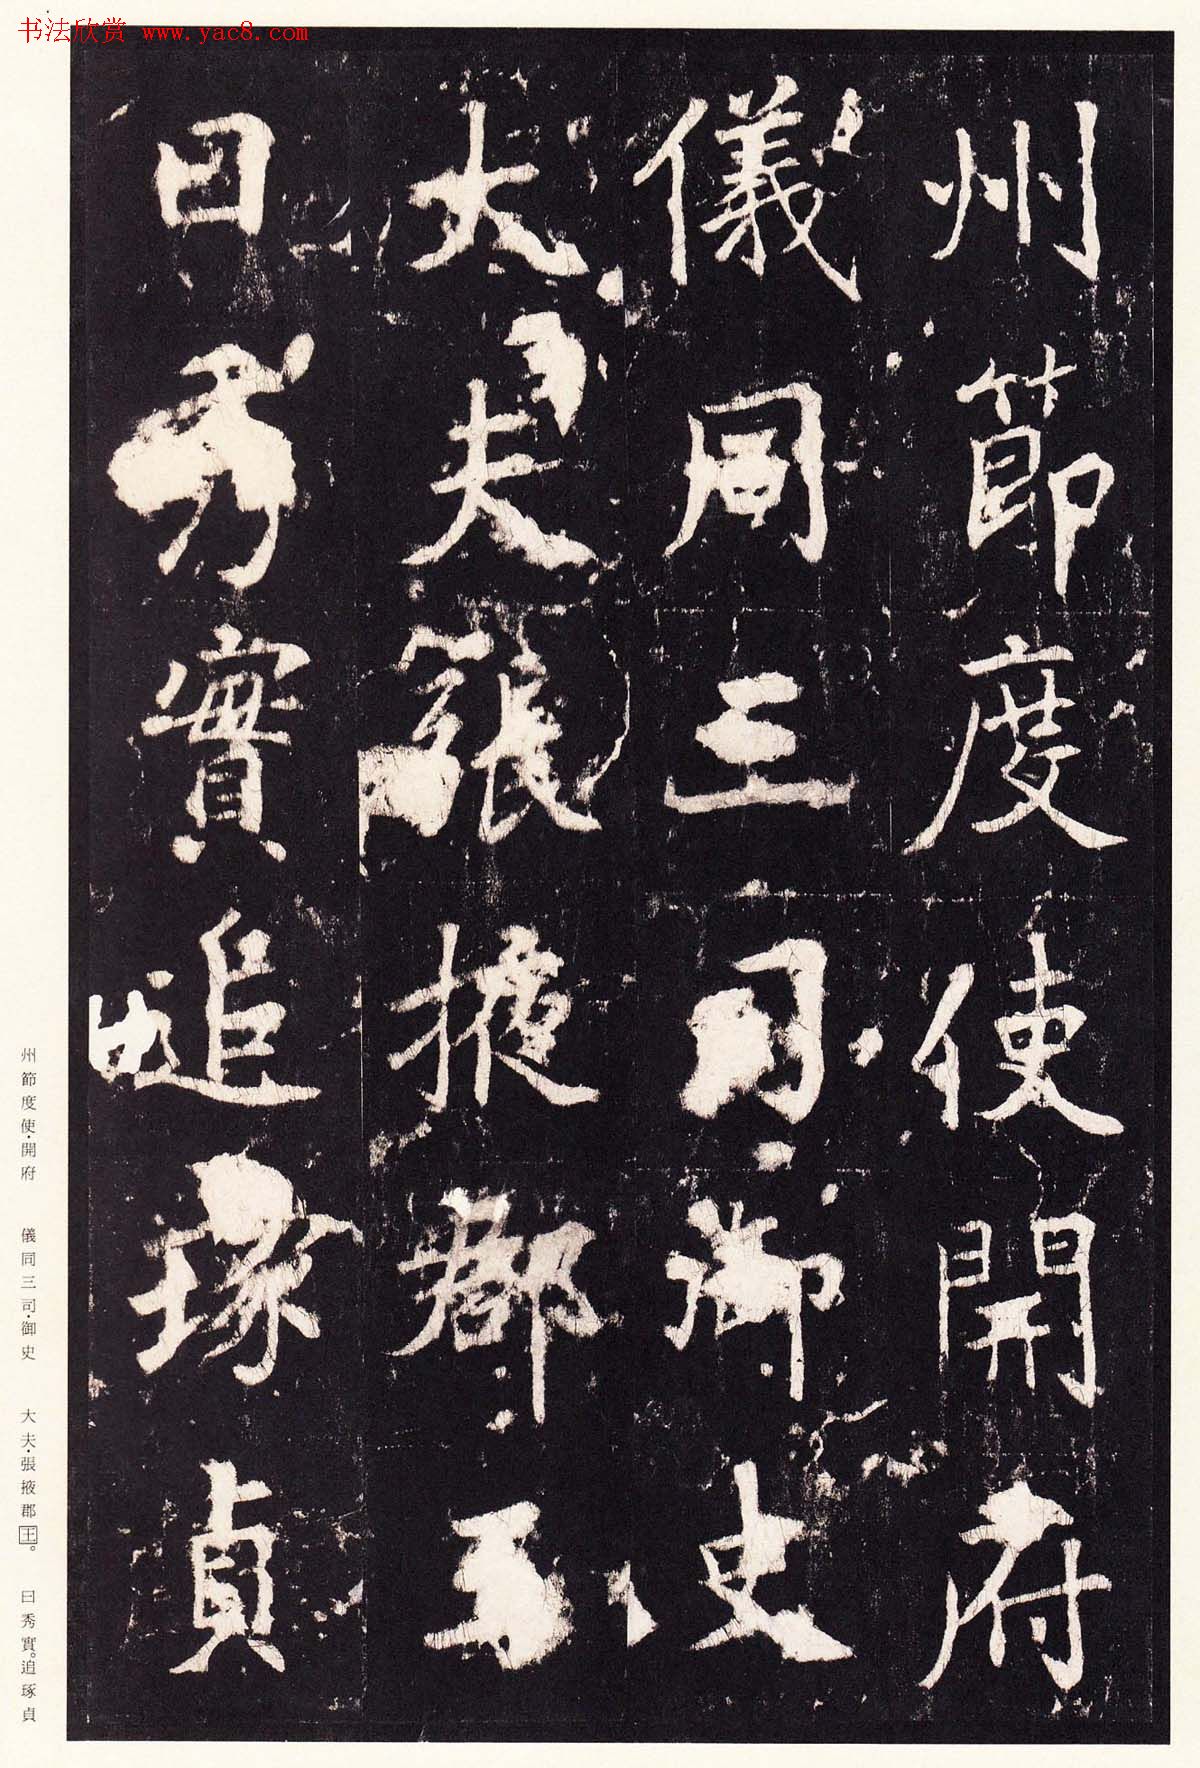 书法欣赏 www.yac8.com
州節度使開府
儀同三司御史
大夫張掖郡王
曰秀實追琢貞
州節度使·開府 儀同三司·御史 大夫·張掖郡王。 曰秀實。追琢貞